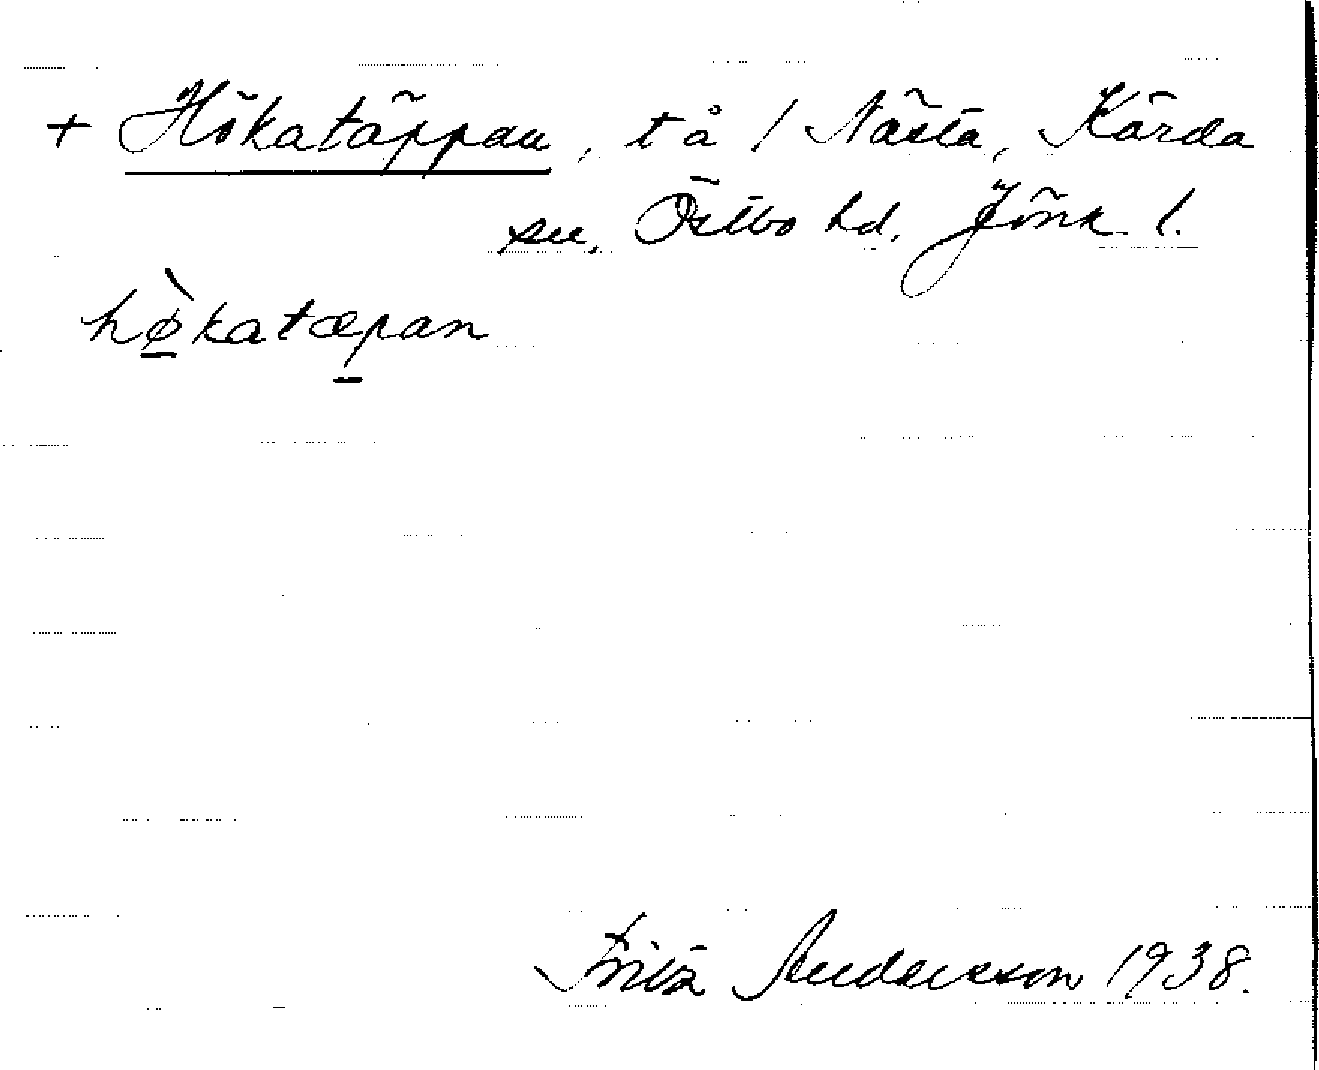 + Hökatäppan, tå / Nästa, Kärda
sn. Östbo hd. Jönk l.
hø̀katæpan
Fritz Andersson 1938.